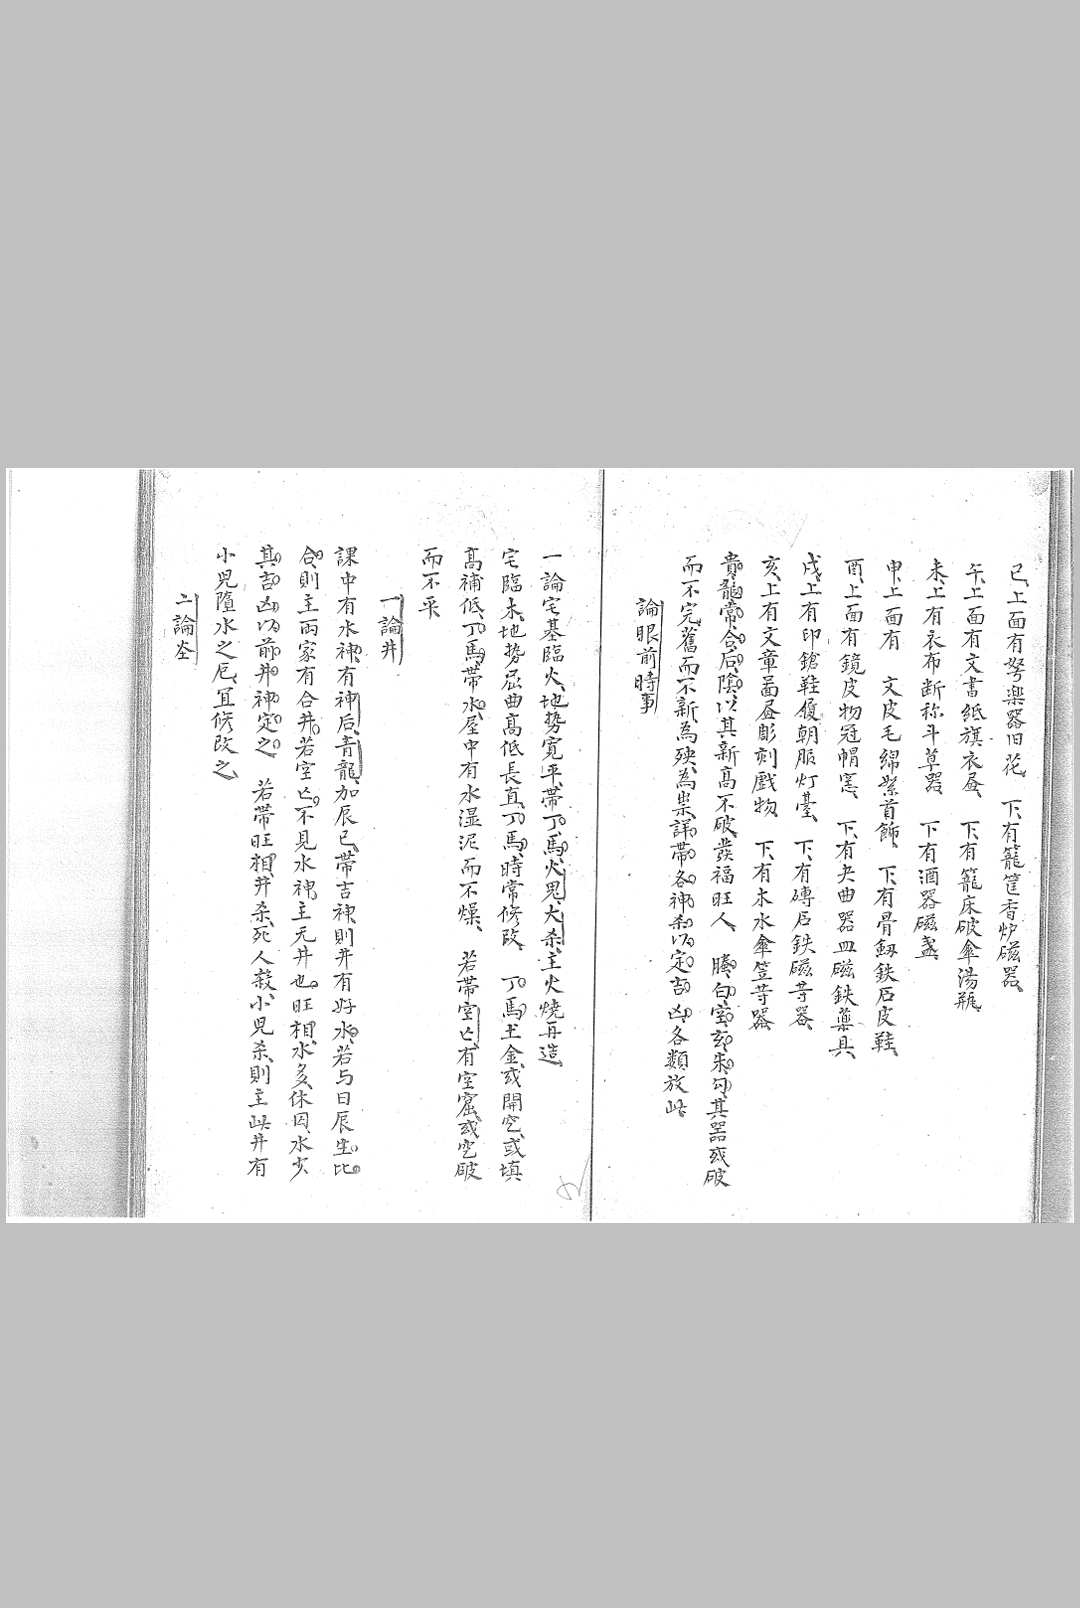 巳、上面有弩楽器旧花、下、有籠筐香炉磁器、
午、上面有文書紙旗衣昼、下、有籠床破傘湯瓶、
未、上有衣布断称斗草器、下有酒器磁盞、
申、上面有 文皮毛綿絮首飾、下、有骨釼鉄石皮鞋、
酉、上面有鏡皮物冠帽、下、有夬曲器皿磁鉄藥具、
戌、上有印鎗鞋履朝服灯臺、下、有磚石鉄磁䓁器、
亥、上有文章啚昼彫刻戲物、下、有木水傘笠䓁器
貴龍常合后陰以其新高不破、發福旺人、騰白空玄朱勾其器或破
而不完、舊而不新、為殃、為祟、詳帯各神殺以定吉凶、各類放此、
論眼前時事
一論宅基臨火、地勢寛平、帯丁馬、火鬼、大杀、主火焼再造、
宅臨木、地勢屈曲高低長直、丁馬、時常修改、丁馬土金、或開空、或填
高補低、丁馬、帯水、屋中有水湿泥而不燥、若帯空亡、有空窟、或空破
而不采、
一論井
課中有水神、有神后、青龍加辰巳、帯吉神、則井有好水、若与日辰生比
合、則主両家有合井、若空亡、不見水神、主无井也、旺相、水多、休囚、水少
其吉凶以前井神定之、若帯旺相、井杀、死人殺、小児杀、則主此井有
小児墮水之厄、冝修改之、
二論